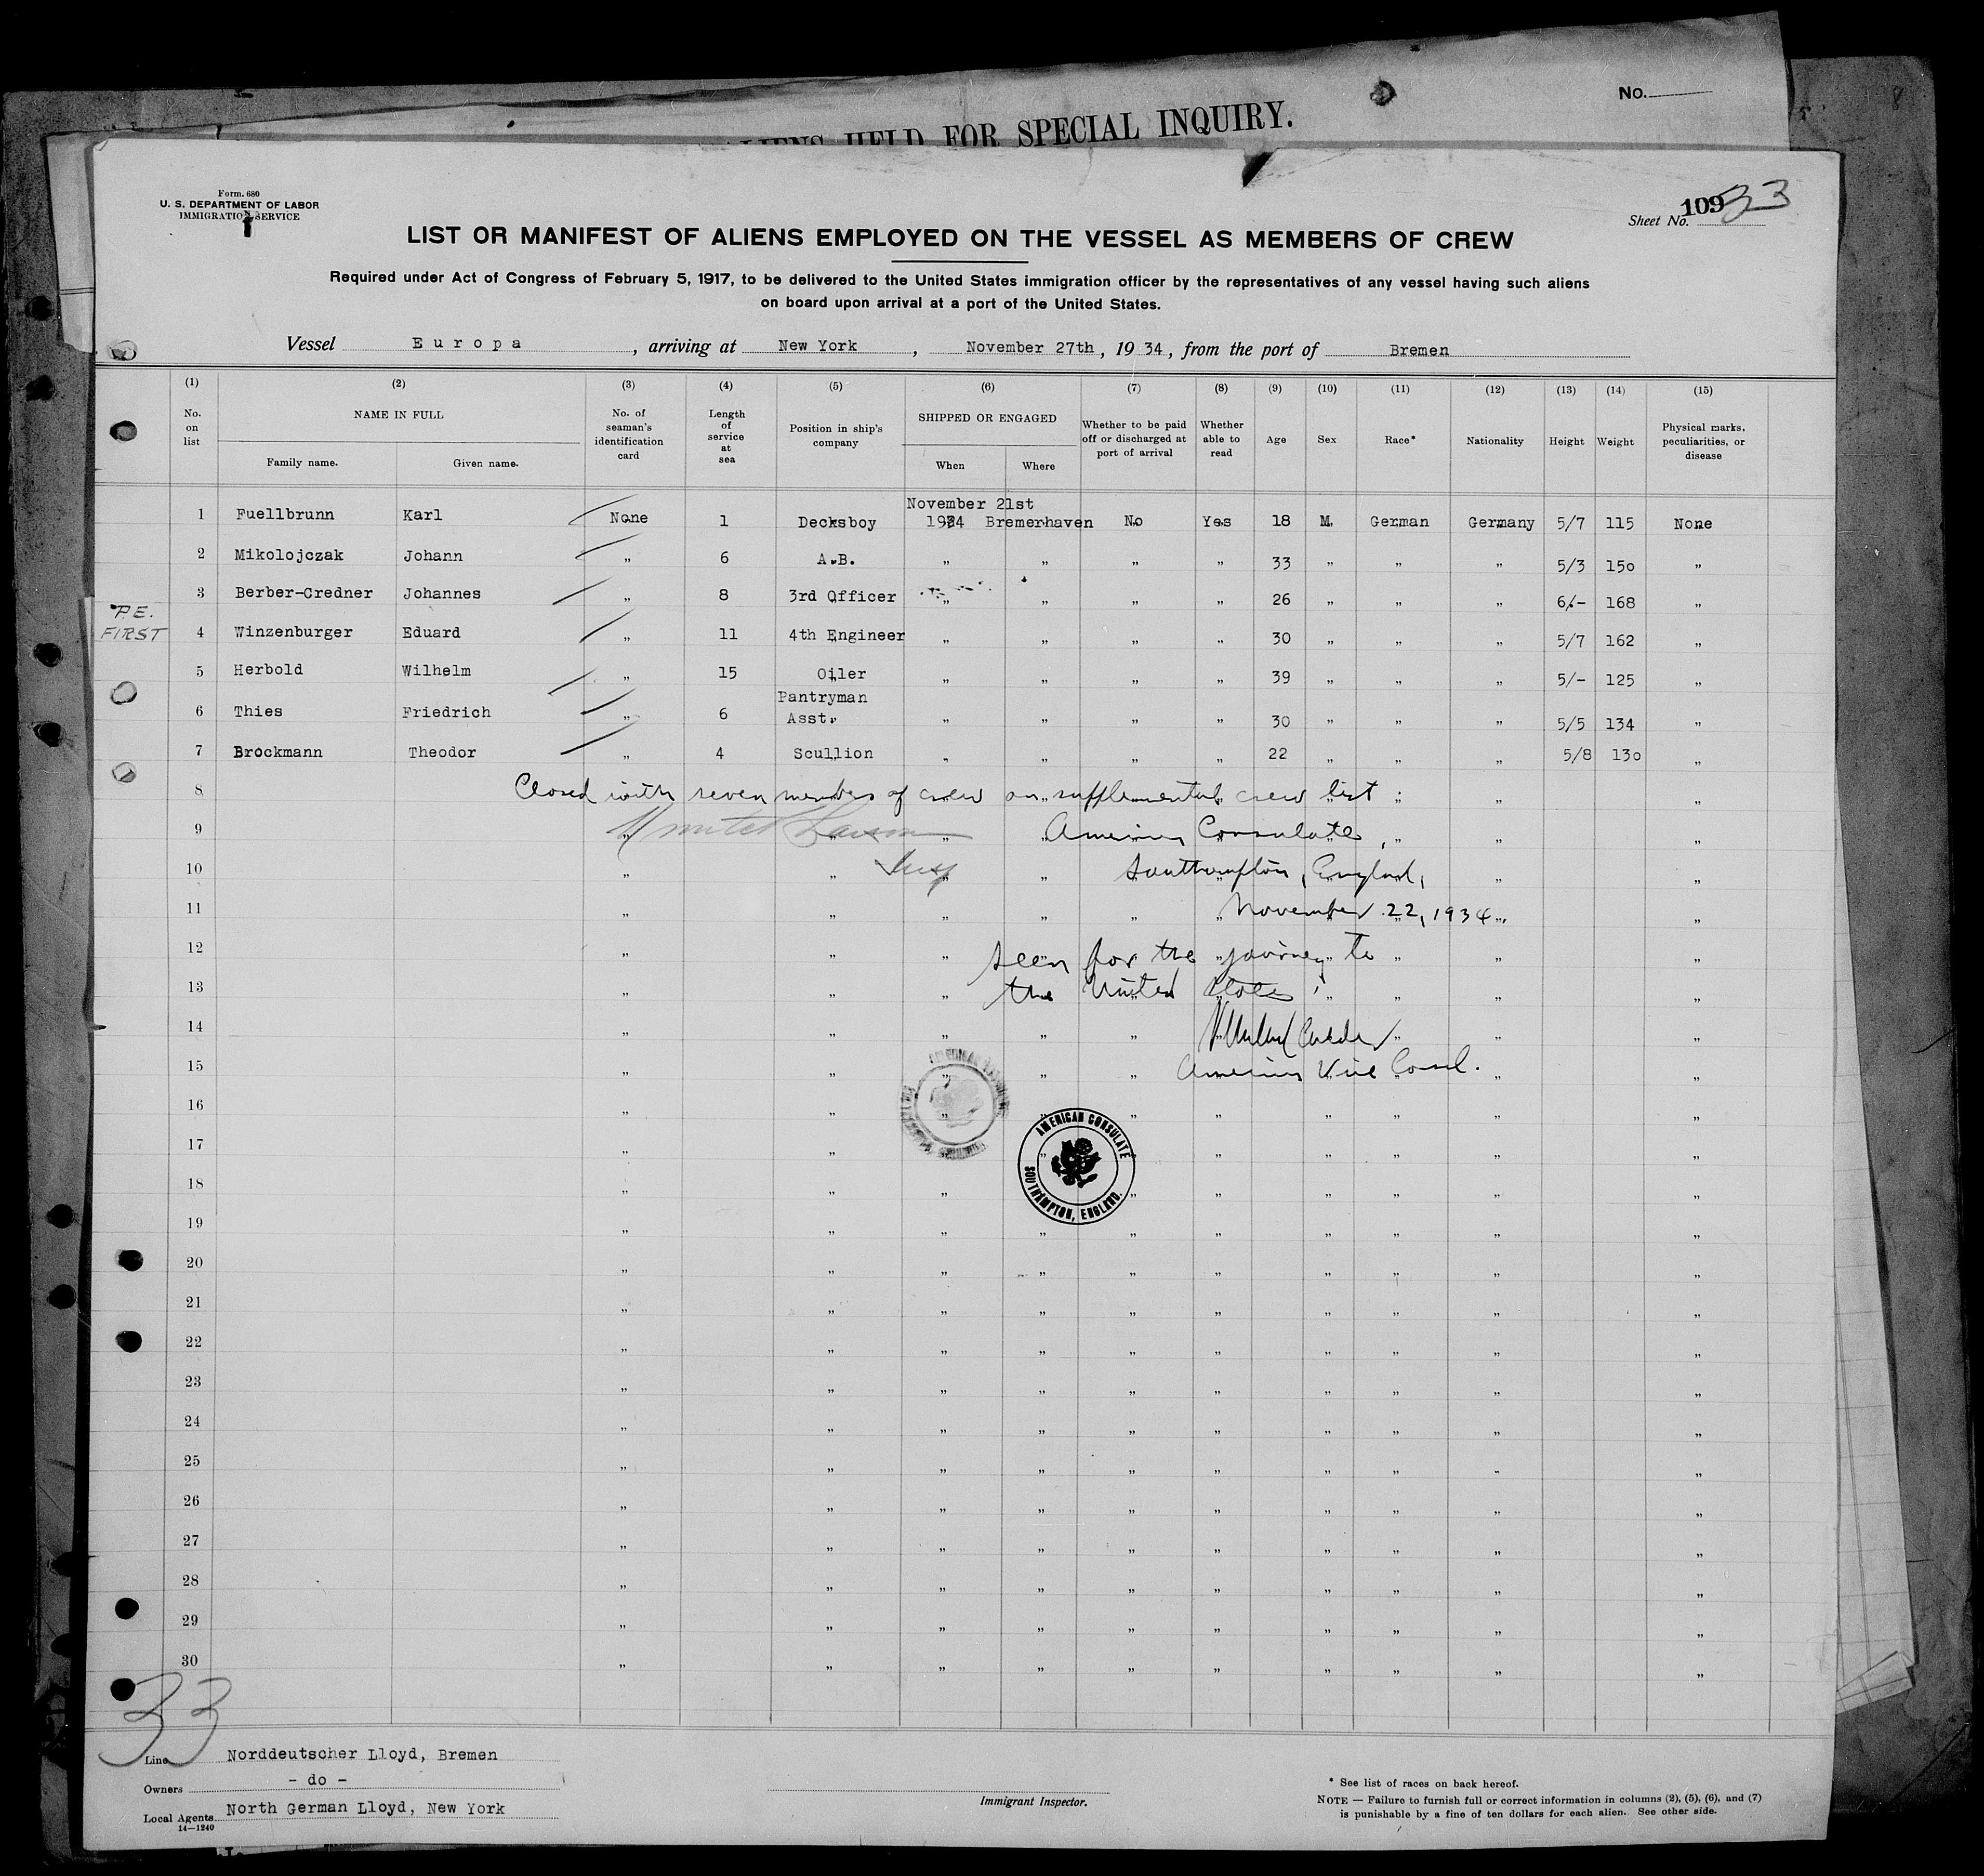 No.
ALIENS HELD FOR SPECIAL INQUIRY.
Form 680
U. S. DEPARTMENT OF LABOR
IMMIGRATION SERVICE
Sheet No. 109 33
LIST OR MANIFEST OF ALIENS EMPLOYED ON THE VESSEL AS MEMBERS OF CREW
Required under Act of Congress of February 5, 1917, to be delivered to the United States immigration officer by the representatives of any vessel having such aliens
on board upon arrival at a port of the United States.
Vessel Europa, arriving at New York, November 27th, 1934, from the port of Bremen
(1) (2) (3) (4) (5) (6) (7) (8) (9) (10) (11) (12) (13) (14) (15)
No. on list NAME IN FULL Family name. Given name. No. of seaman's identification card Length of service at sea Position in ship's company SHIPPED OR ENGAGED When Where Whether to be paid off or discharged at port of arrival Whether able to read Age Sex Race* Nationality Height Weight Physical marks, peculiarities, or disease
1 Fuellbrunn Karl None 1 Decksboy November 21st 1934 Bremerhaven No Yes 18 M. German Germany 5/7 115 None
2 Mikolojczak Johann „ 6 A.B. „ „ „ „ 33 „ „ „ 5/3 150 „
3 Berber-Credner Johannes „ 8 3rd Officer „ „ „ „ 26 „ „ „ 6/- 168 „
P.E. FIRST
4 Winzenburger Eduard „ 11 4th Engineer „ „ „ „ 30 „ „ „ 5/7 162 „
5 Herbold Wilhelm „ 15 Oiler „ „ „ „ 39 „ „ „ 5/- 125 „
6 Thies Friedrich „ 6 Pantryman Asst. „ „ „ „ 30 „ „ „ 5/5 134 „
7 Brockmann Theodor „ 4 Scullion „ „ „ „ 22 „ „ „ 5/8 130 „
8 Closed with seven members of crew on supplemental crew list :
9 American Consulate,
10 Southampton, England,
11 November 22, 1934.
12 Seen for the journey to
13 the United States:
14
15 American Vice Consul.
16
17
AMERICAN CONSULATE
SOUTHAMPTON, ENGLAND.
18
19
20
21
22
23
24
25
26
27
28
29
30
33
Line Norddeutscher Lloyd, Bremen
Owners - do -
Local Agents North German Lloyd, New York
14—1240
Immigrant Inspector.
* See list of races on back hereof.
NOTE — Failure to furnish full or correct information in columns (2), (5), (6), and (7)
is punishable by a fine of ten dollars for each alien. See other side.